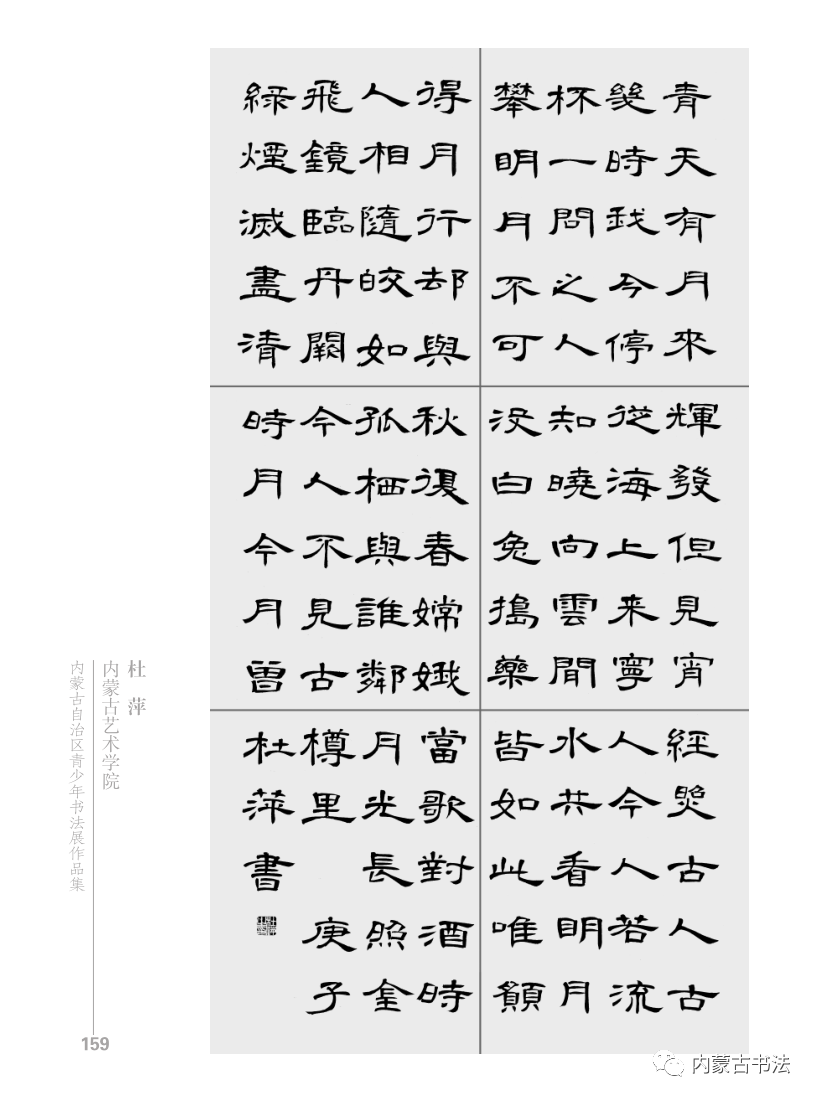 青天有月來
幾時我今停
杯一問之人
攀明月不可
得月行却與
人相隨皎如
飛鏡臨丹闕
緑煙滅盡清
輝發但見宵
從海上来寧
知曉向雲間
没白兔搗藥
秋復春嫦娥
孤栖與誰鄰
今人不見古
時月今月曾
經照古人古
人今人若流
水共看明月
皆如此唯願
當歌對酒時
月光長照金
樽里 庚子
杜萍書
杜 萍
内蒙古艺术学院
内蒙古自治区青少年书法展作品集
159
内蒙古书法